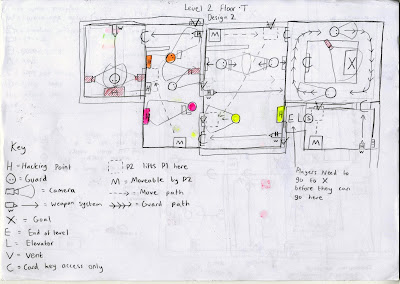 Level 2 Floor T
Design 2
M
C
C
X
E L S
M
M
Key
H = Hacking Point
= Guard
= Camera
W = Weapon system
X = Goal
E = End of level
L = Elevator
V = Vent
C = Card key access only
= P2 lifts P1 here
M = Moveable by P2
= Move path
= Guard path
Players need to
go to X
before they can
go here